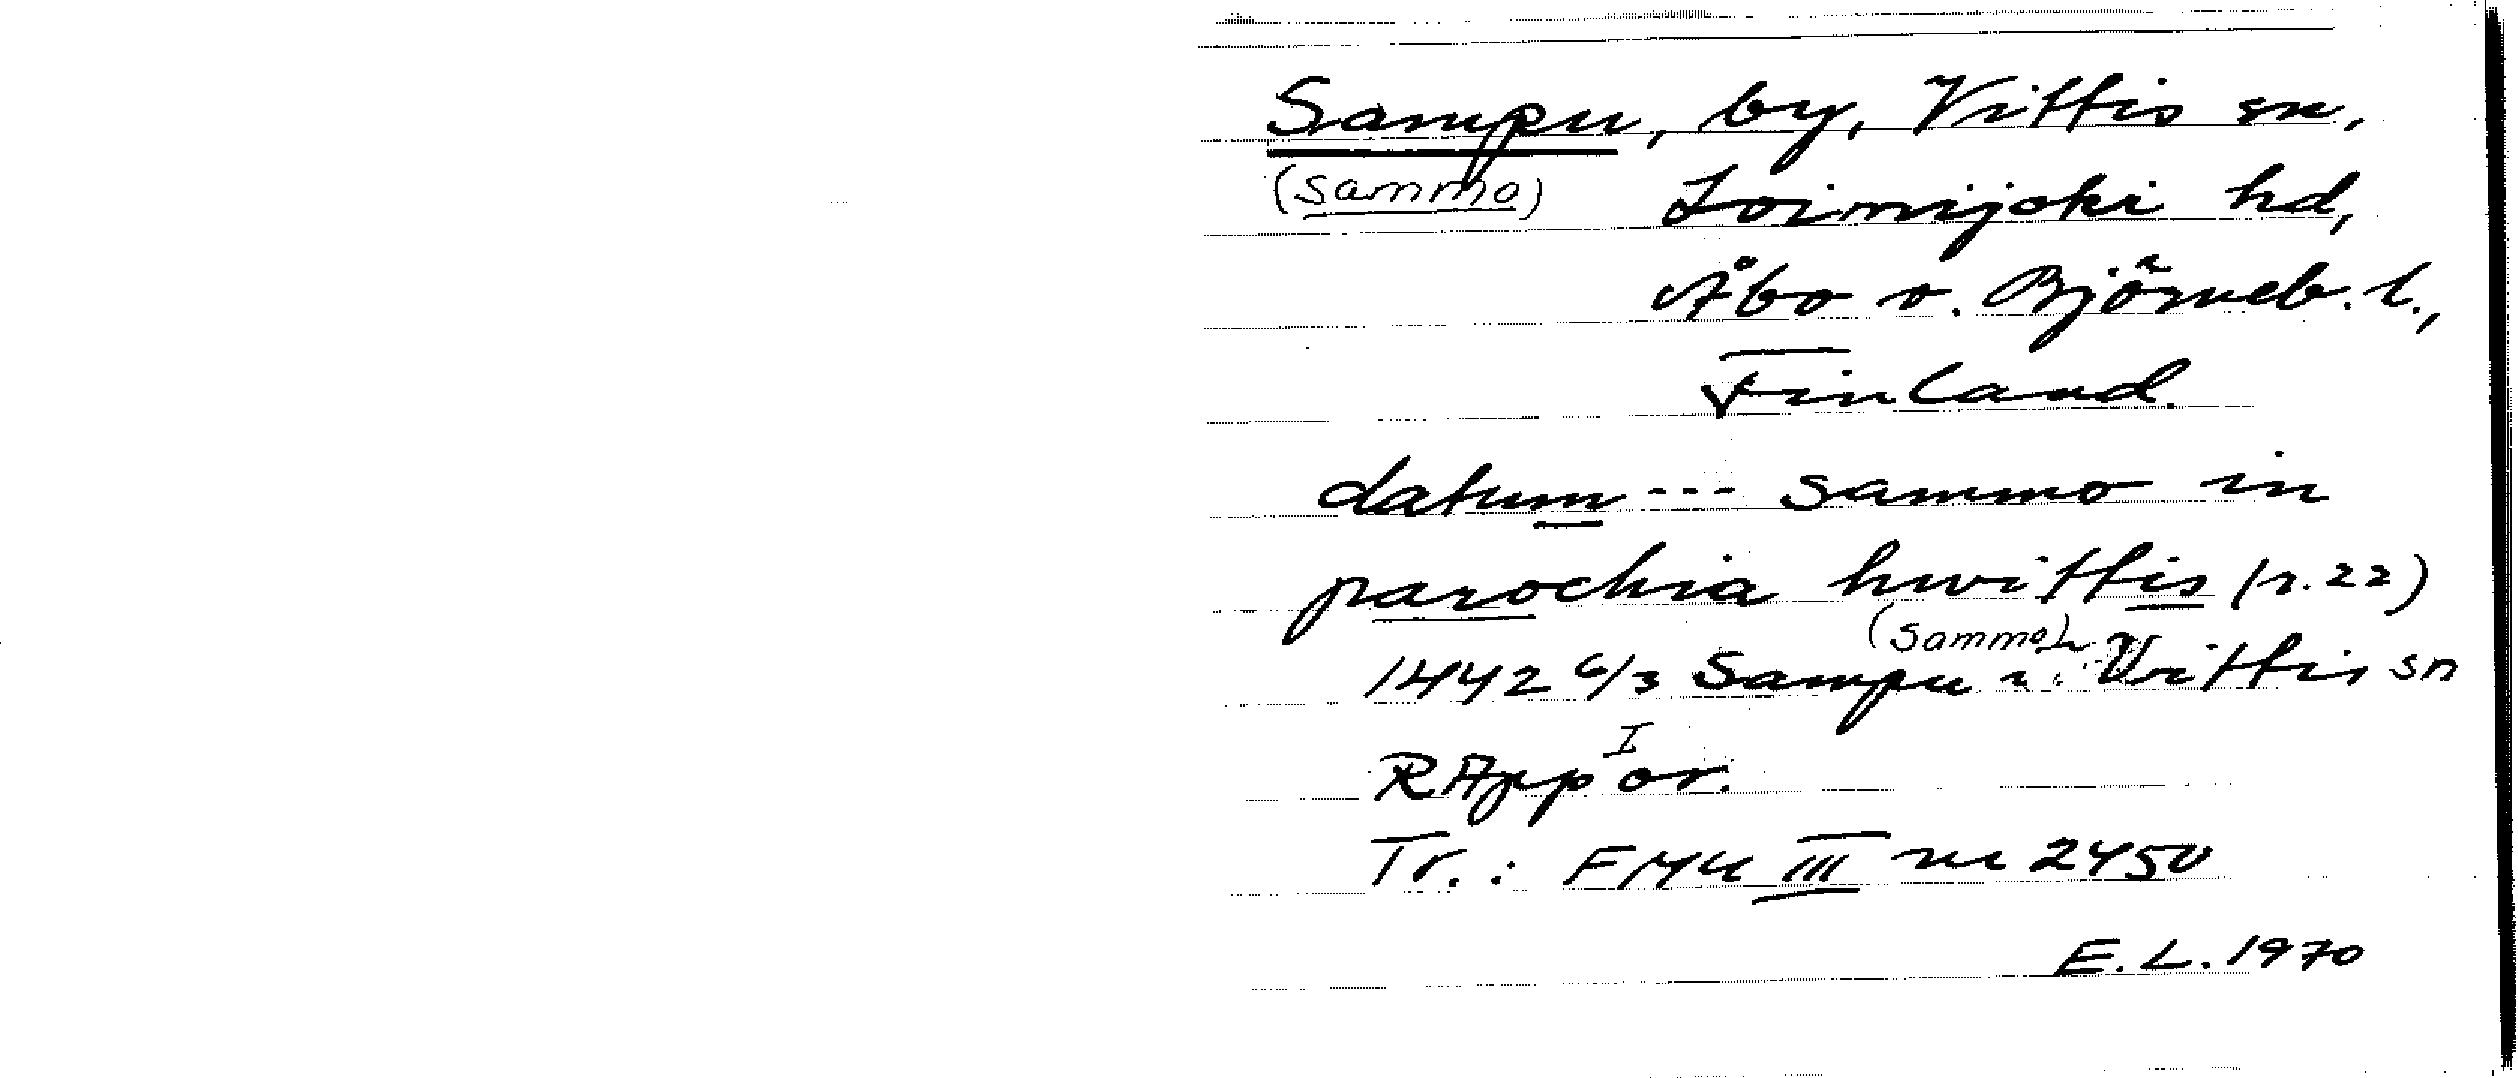 Sampu, by, Vittis sn,
(Sammo) Loimijoki hd,
Åbo o. Björneb. l.,
Finland.
datum --- sammo in
parochia hwittis (r. 22)
(Sammo)
1442 6/3 Sampu i Vittis sn
RApp I or.
Tr.: FMU III nr 2450
E.L. 1970